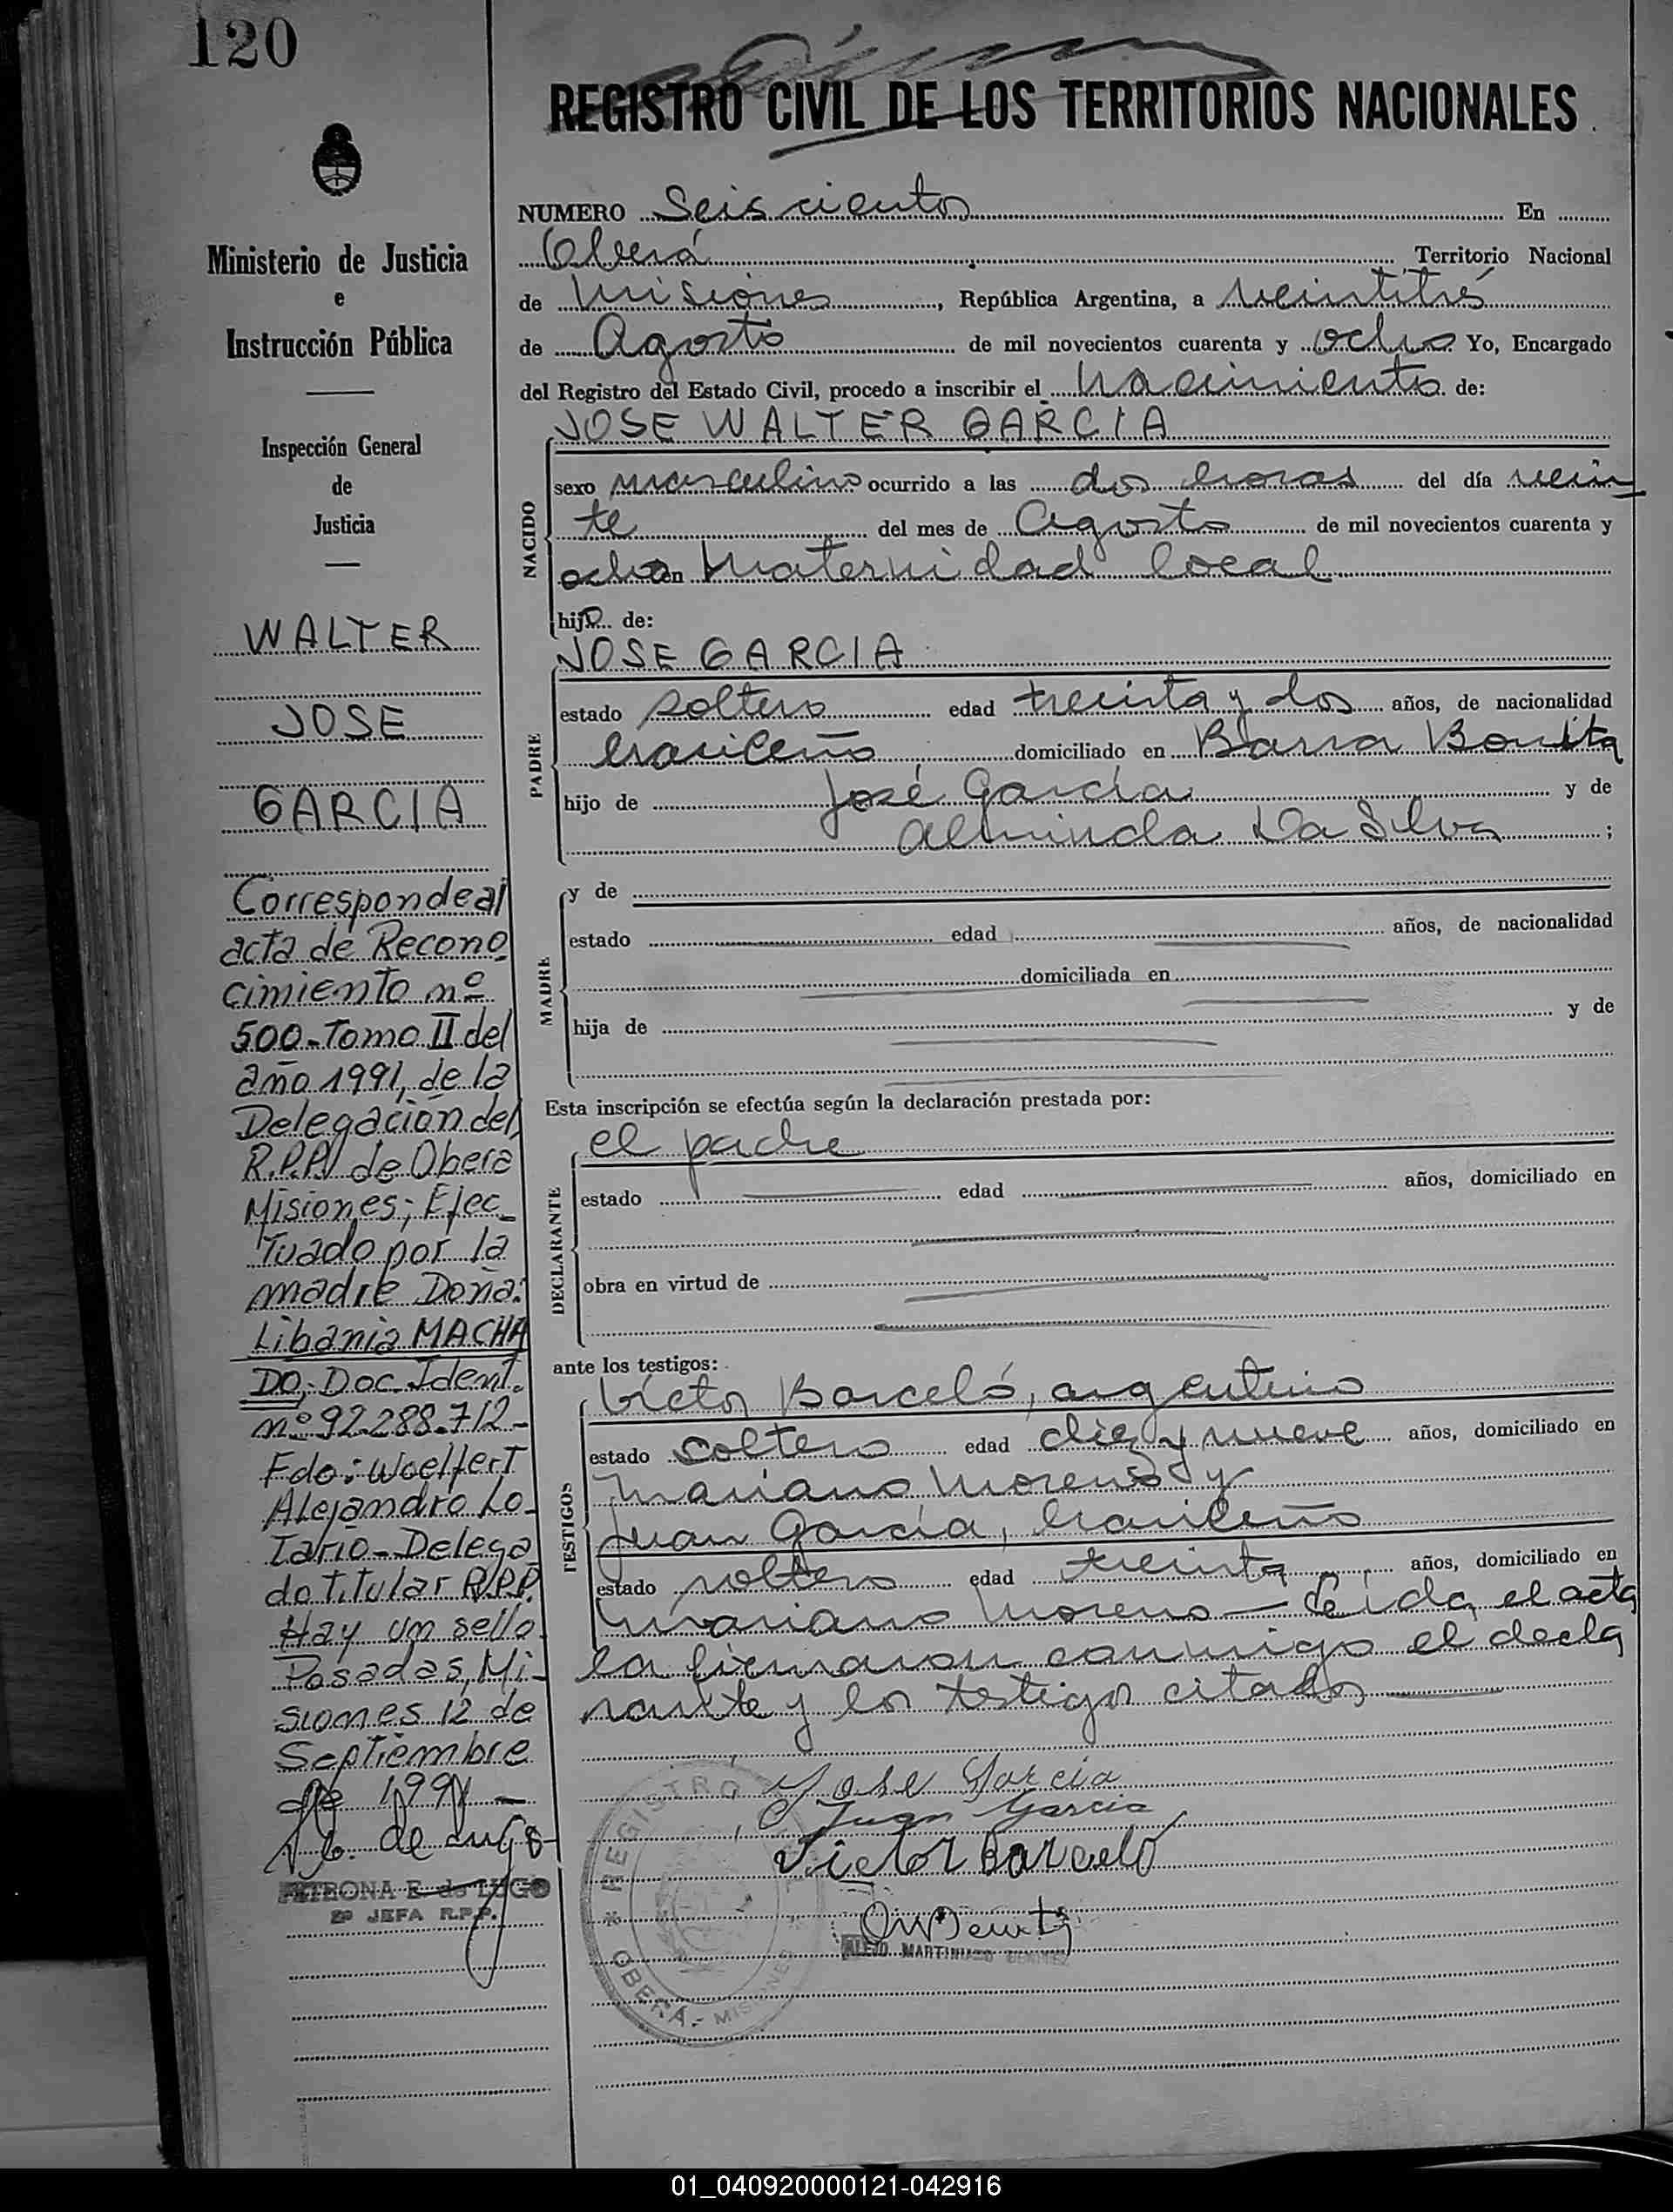 120
REGISTRO CIVIL DE LOS TERRITORIOS NACIONALES
Ministerio de Justicia
e
Instrucción Pública
Inspección General
de
Justicia
WALTER
JOSE
GARCIA
Corresponde al
acta de Recono
cimiento nº
500-Tomo II del
año 1991, de la
Delegación del
R.P.P. de Obera
Misiones; Efec_
tuado por la
madre Doña:
Libania MACHA
DO, Doc. Ident.
nº 92.288.712-
Fdo: Woelfert
Alejandro Lo-
tario-Delega
do titular R.P.P.
Hay un sello
Posadas, Mi-
siones 12 de
Septiembre
de 1991-
de Lugo
PETRONA E. de LUGO
2º JEFA R.P.P.
NUMERO Seis cientos En
Oberá Territorio Nacional
de Misiones, República Argentina, a veintitrés
de Agosto de mil novecientos cuarenta y ocho Yo, Encargado
del Registro del Estado Civil, procedo a inscribir el nacimiento de:
NACIDO
JOSE WALTER GARCIA
sexo masculino ocurrido a las dos horas del día vein
te del mes de Agosto de mil novecientos cuarenta y
ocho en Maternidad local
hijo de:
PADRE
JOSE GARCIA
estado soltero edad treinta y dos años, de nacionalidad
brasileño domiciliado en Barra Bonita
hijo de José García y de
Alminda Da Silva ;
MADRE
y de
estado edad años, de nacionalidad
domiciliada en
hija de y de
Esta inscripción se efectúa según la declaración prestada por:
DECLARANTE
el padre
estado edad años, domiciliado en
obra en virtud de
ante los testigos:
TESTIGOS
Víctor Barceló, argentino
estado soltero edad diez y nueve años, domiciliado en
Mariano Moreno y
Juan García, brasileño
estado soltero edad treinta años, domiciliado en
Mariano Moreno — Leída el acta
la firmaron conmigo el decla
rante y los testigos citados
Jose Garcia
Juan Garcia
Victor Barceló
ALEJO MARTINIANO
REGISTRO
OBERÁ.- MISIONES
01_040920000121-042916